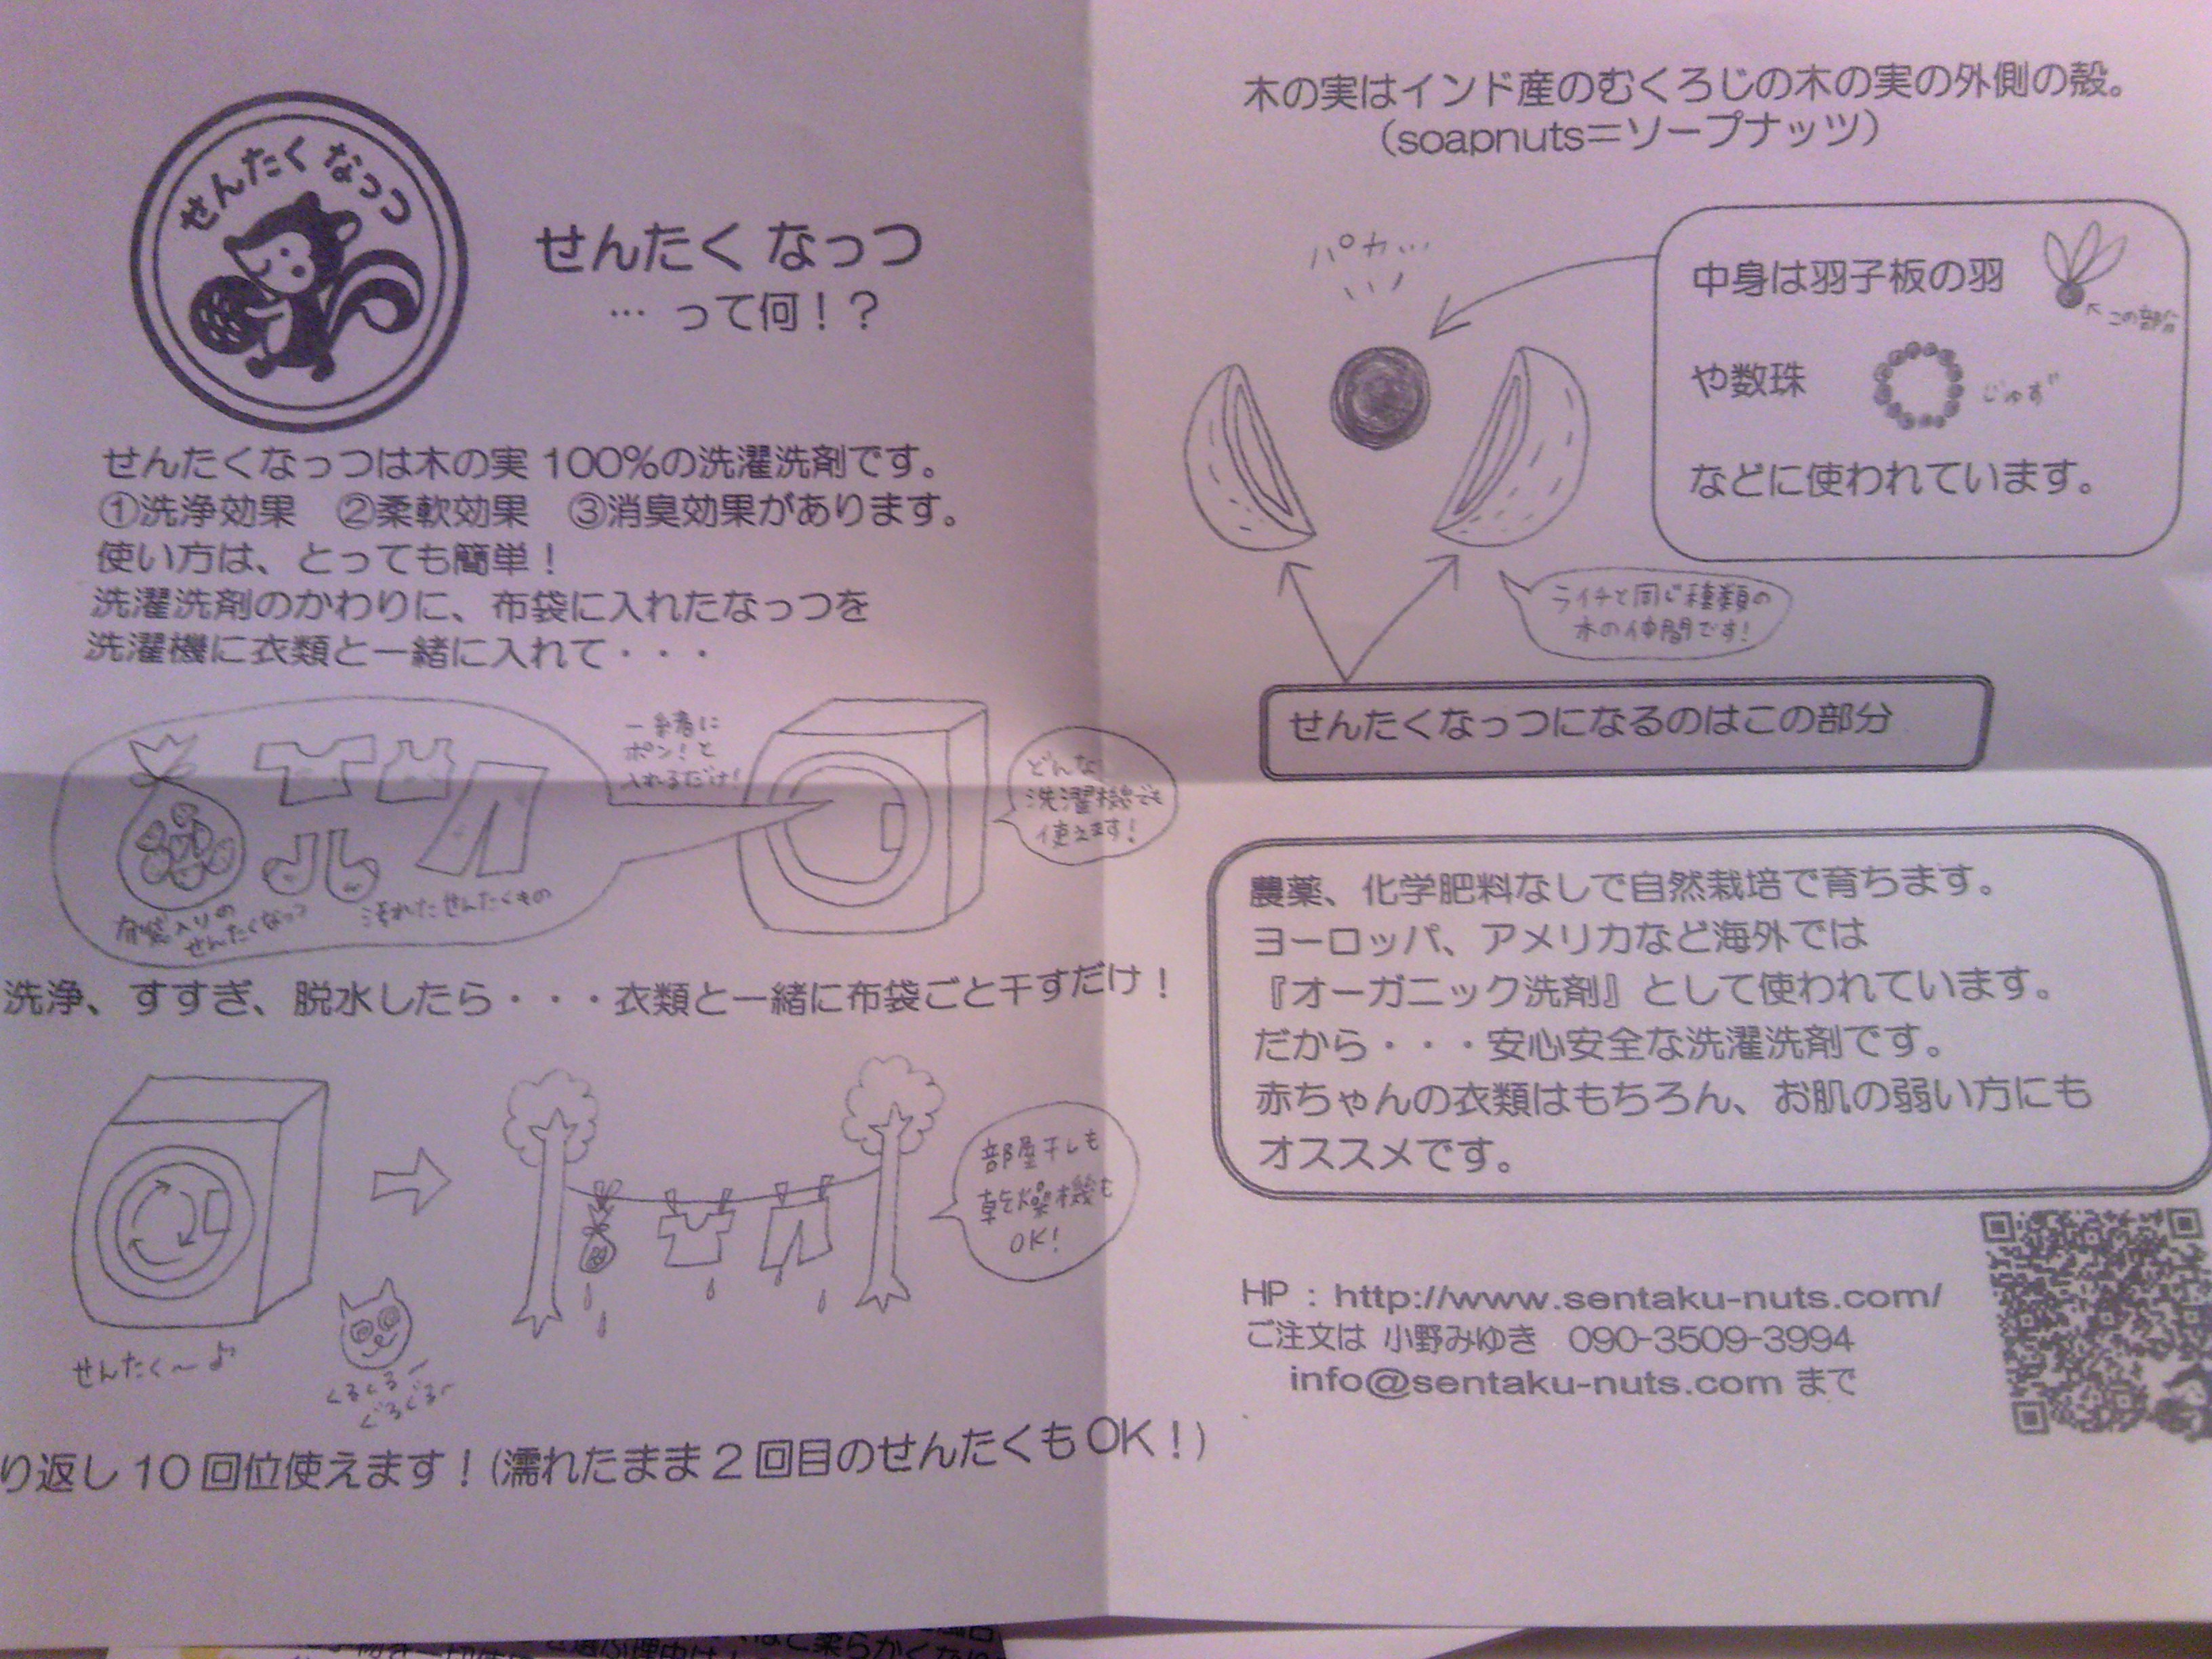 せんたくなっつ
せんたく なっつ
… って何！？
せんたくなっつは木の実 100％の洗濯洗剤です。
①洗浄効果　②柔軟効果　③消臭効果があります。
使い方は、とっても簡単！
洗濯洗剤のかわりに、布袋に入れたなっつを
洗濯機に衣類と一緒に入れて・・・
一緒に
ポン！と
入れるだけ！
どんな
洗濯機でも
使えます！
布袋入りの
せんたくなっつ
濡れたせんたくもの
洗浄、すすぎ、脱水したら・・・衣類と一緒に布袋ごと干すだけ！
部屋干しも
乾燥機も
OK！
せんたく～♪
くるくるー
ぐるぐるー
り返し 10 回位使えます！(濡れたまま 2 回目のせんたくも OK！)
木の実はインド産のむくろじの木の実の外側の殻。
（soapnuts＝ソープナッツ）
パカ…
中身は羽子板の羽
←この部分
や数珠
じゅず
などに使われています。
ライチと同じ種類の
木の仲間です！
せんたくなっつになるのはこの部分
農薬、化学肥料なしで自然栽培で育ちます。
ヨーロッパ、アメリカなど海外では
『オーガニック洗剤』として使われています。
だから・・・安心安全な洗濯洗剤です。
赤ちゃんの衣類はもちろん、お肌の弱い方にも
オススメです。
HP : http://www.sentaku-nuts.com/
ご注文は 小野みゆき 090-3509-3994
info@sentaku-nuts.com まで